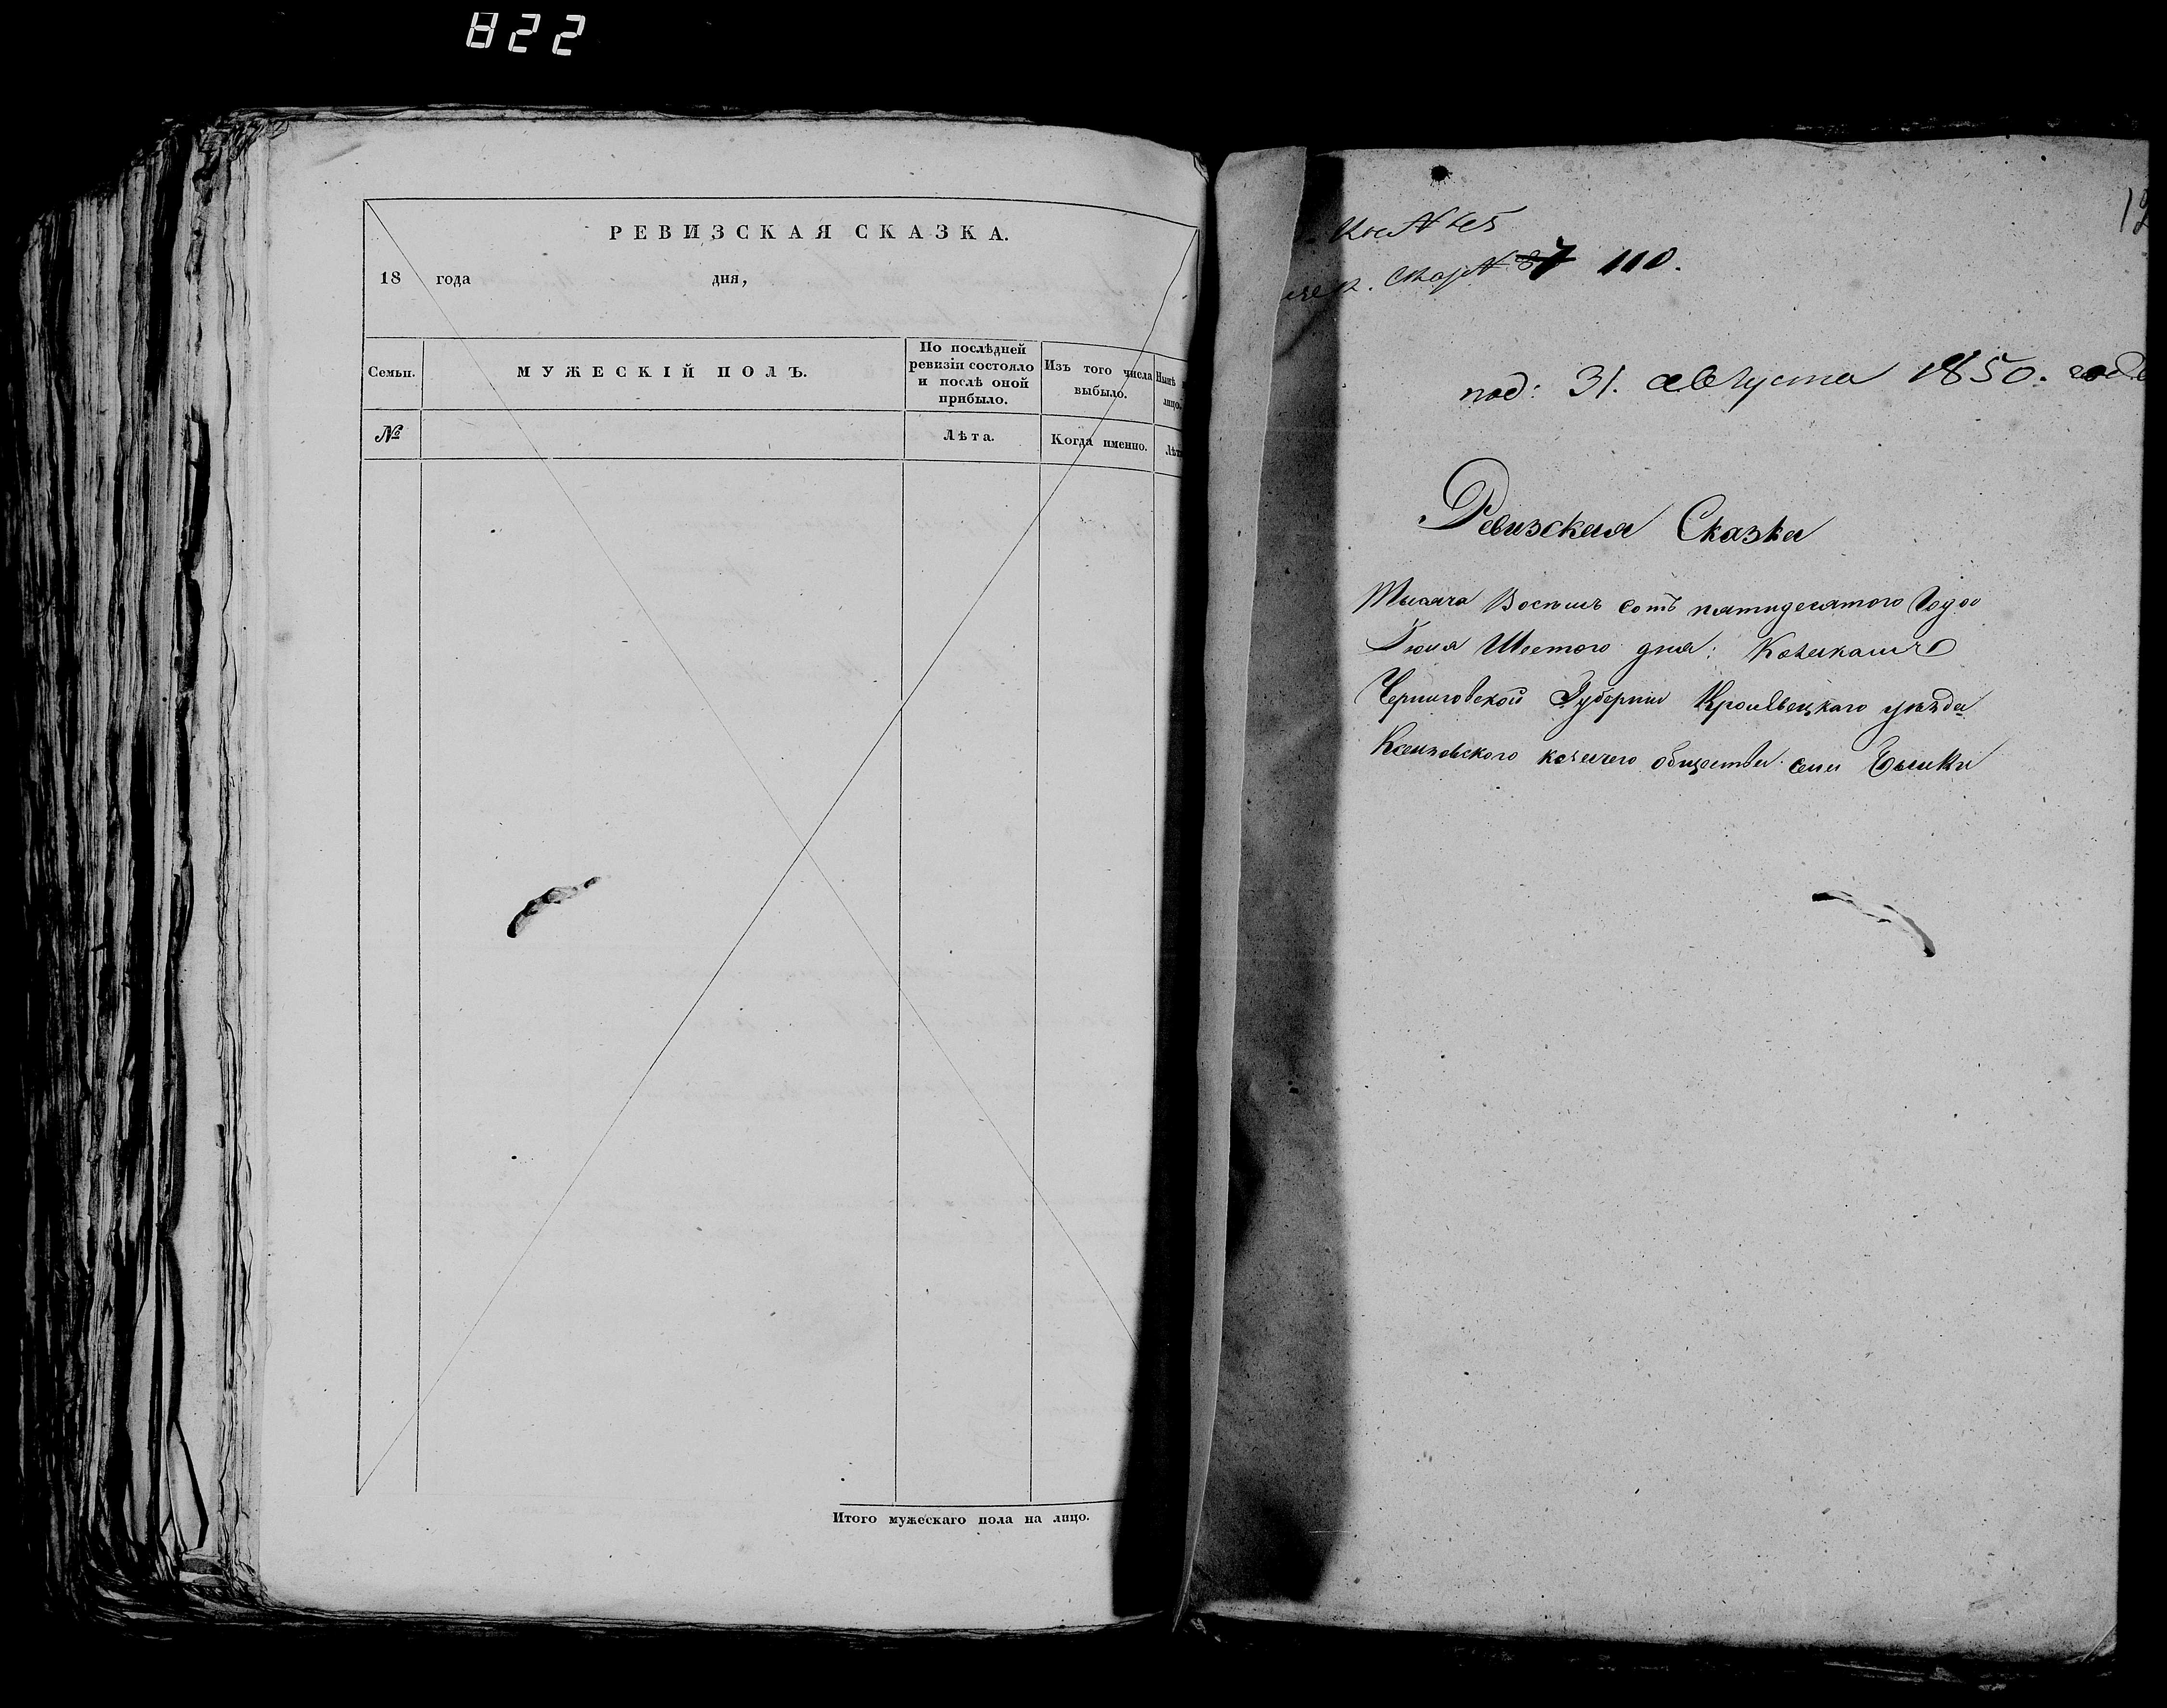 822
РЕВИЗСКАЯ СКАЗКА.
18 года дня,
Семьи.
МУЖЕСКІЙ ПОЛЪ.
По послѣдней
ревизіи состояло
и послѣ оной
прибыло.
Изъ того числа
выбыло.
№
Лѣта.
Когда именно.
Итого мужескаго пола на лицо.
110.
под: 31. августа 1850. года
Ревизская Сказка
Тысяча Восемъ сотъ пятидесятого Года
Іюня Шестого дня:
Черниговской Губерніи Кролевецкаго уѣзда
козачего общества села Быстки